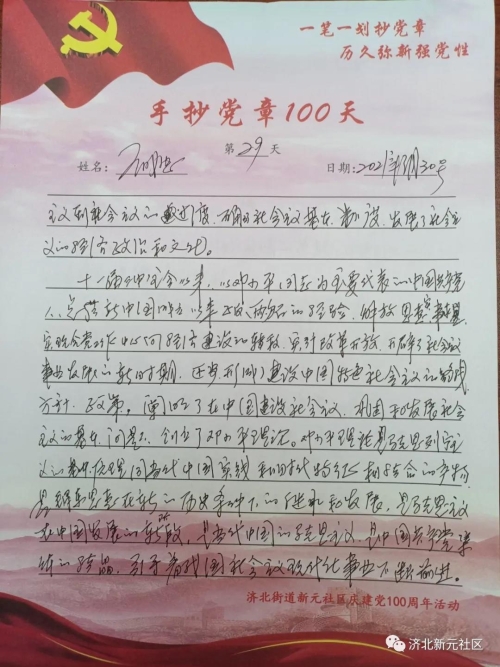 一笔一划抄党章
历久弥新强党性
手抄党章100天
姓名：
第29天
日期：2021年 月30号
主义到社会主义的过渡，确立了社会主义基本制度，发展了社会主
义的经济、政治和文化。
十一届三中全会以来，以邓小平同志为主要代表的中国共产党
人，总结新中国成立以来正反两方面的经验，解放思想，实事求是，
实现全党工作中心向经济建设的转移，实行改革开放，开辟了社会主义
事业发展的新时期，逐步形成了建设中国特色社会主义的路线
方针、政策，阐明了在中国建设社会主义、巩固和发展社会
主义的基本问题，创立了邓小平理论。邓小平理论是马克思列宁主
义的基本原理同当代中国实践和时代特征相结合的产物，
是毛泽东思想在新的历史条件下的继承和发展，是马克思主义
在中国发展的新阶段，是当代中国的马克思主义，是中国共产党集
体的结晶，引导着我国社会主义现代化事业不断前进。
济北街道新元社区庆建党100周年活动
济北新元社区